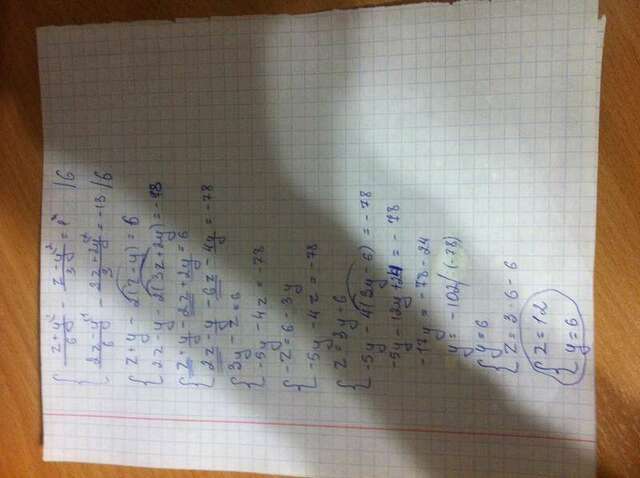 { (z+y)/6 - (z-y)/3 = 1 /6
{ (2z-y)/6 - (3z+2y)/3 = -13 /6
{ z+y - 2(z-y) = 6
{ 2z-y - 2(3z+2y) = -78
{ z+y - 2z+2y = 6
{ 2z-y - 6z - 4y = -78
{ 3y - z = 6
{ -5y - 4z = -78
{ -z = 6 - 3y
{ -5y - 4z = -78
{ z = 3y - 6
{ -5y - 4(3y - 6) = -78
-5y - 12y + 24 = -78
-17y = -78 - 24
y = -102 / (-78)
{ y = 6
{ z = 3 · 6 - 6
{ z = 12
{ y = 6